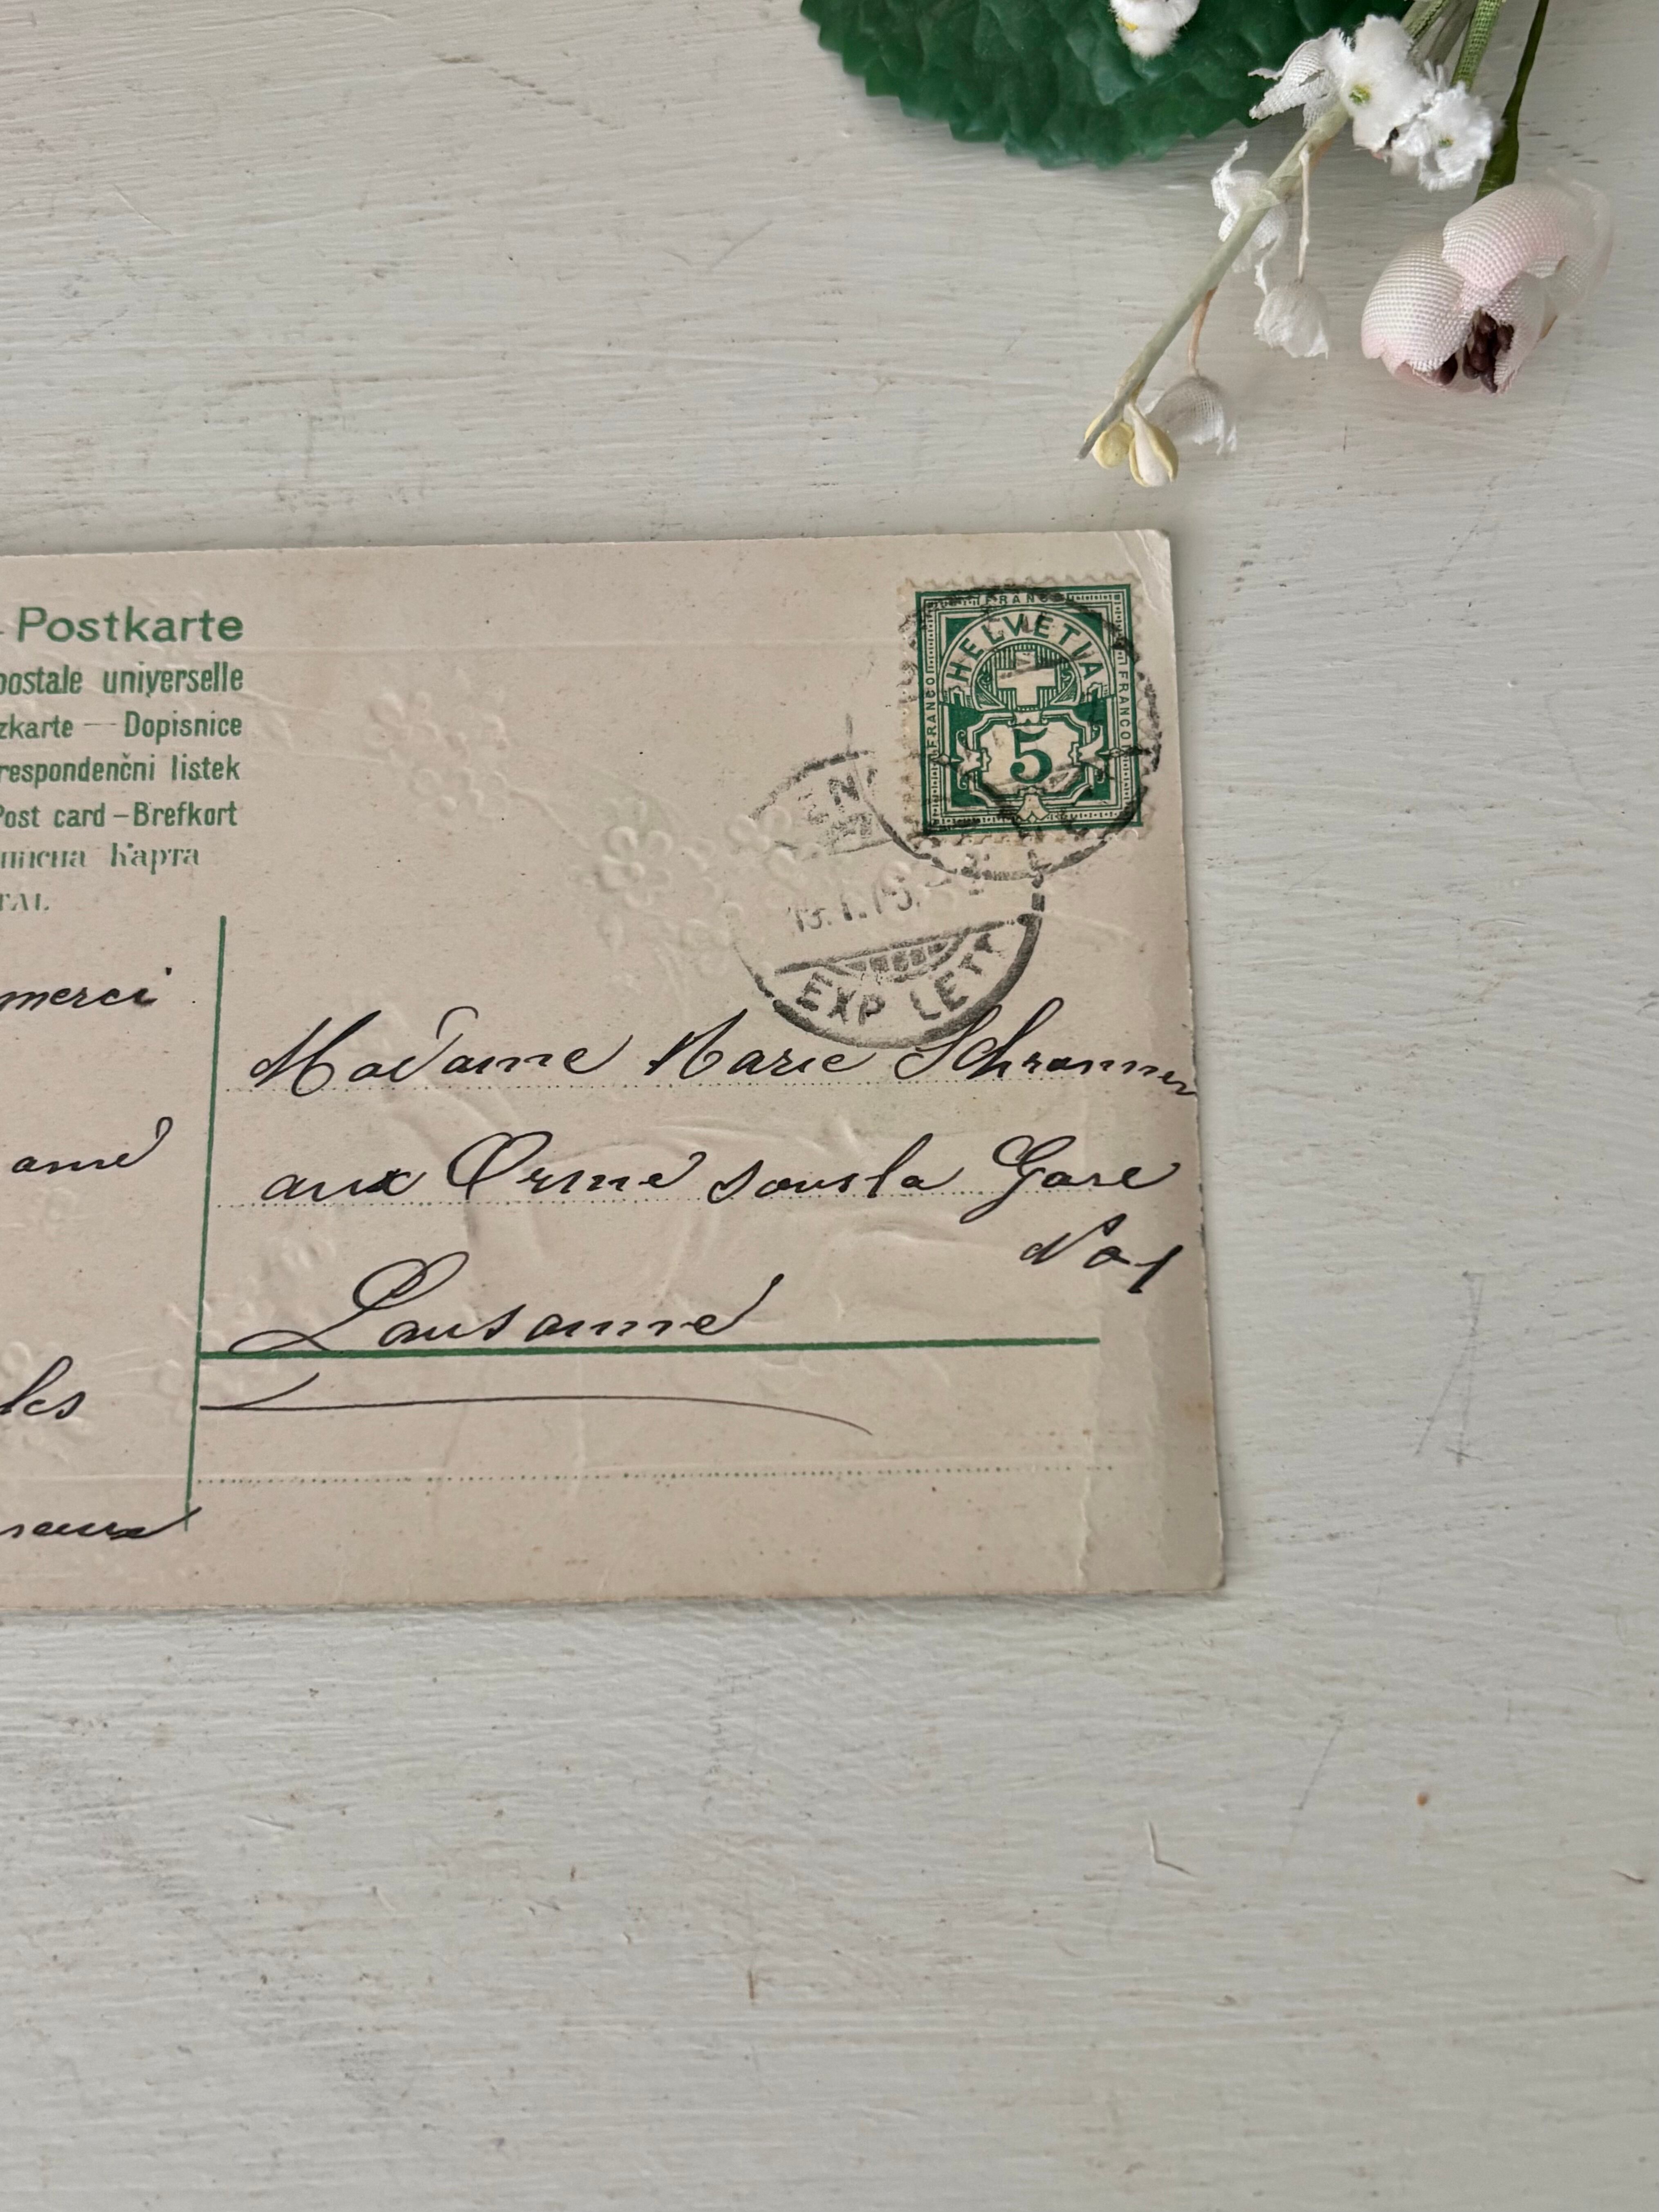 Postkarte
postale universelle
zkarte — Dopisnice
respondenčni listek
Post card – Brefkort
Карта
TAL
FRANCO
HELVETIA
FRANCO
FRANCO
5
EXP LETT
merci
amé
les
Madame Marie Schrammer
aux Orme sous la Gare
No 1
Lausanne